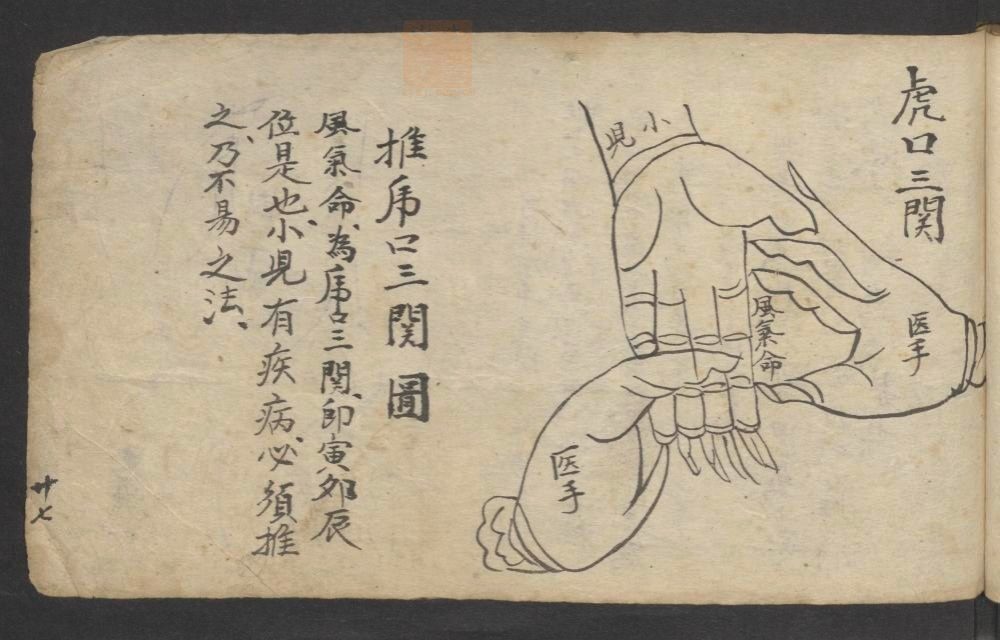 虎口三関
小児
医手
風氣命
医手
推虎口三関圖
風氣命為虎口三関即寅卯辰
位是也小児有疾病必須推
之乃不易之法
廿七